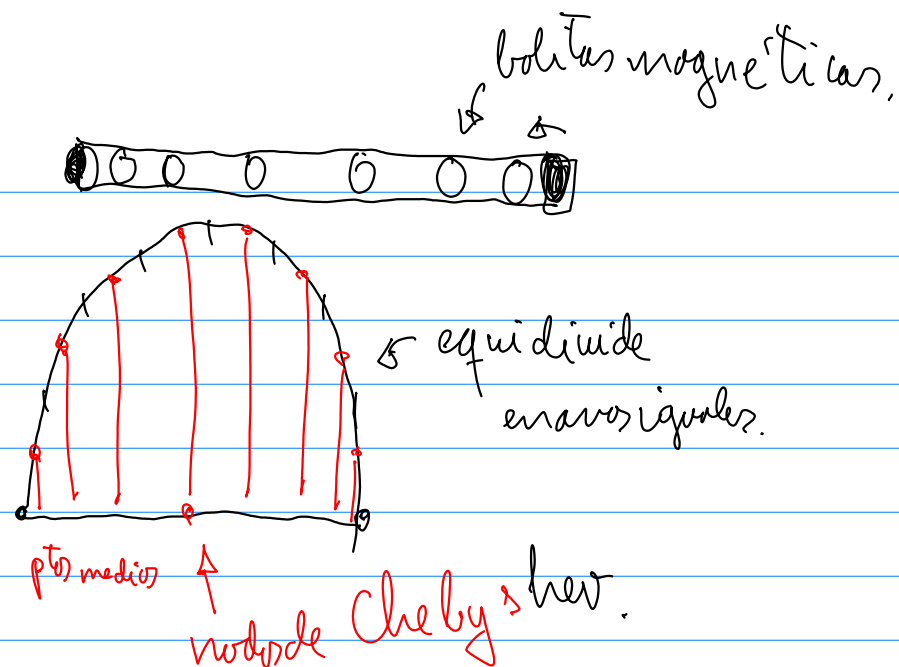 bolitas magnéticas.
equidivide
en arcos iguales.
ptos medios
nodos de Chebyshev.